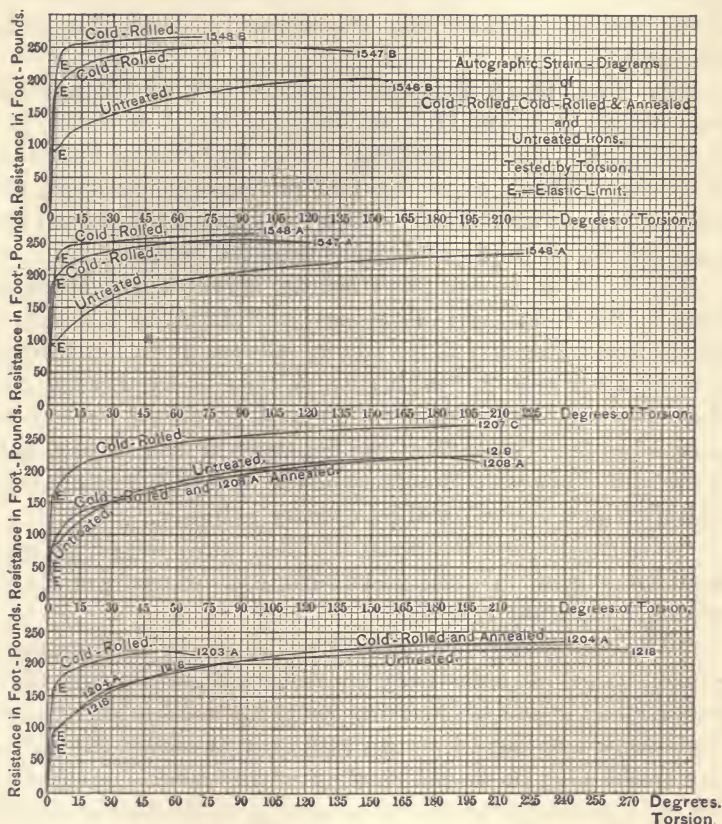 Resistance in Foot-Pounds. Resistance in Foot-Pounds. Resistance in Foot-Pounds. Resistance in Foot-Pounds.
Cold-Rolled. 1548 B
250
E Cold-Rolled. 1547 B
200 E
Untreated. 1548 B
150
100
E
50
0
Autographic Strain-Diagrams
of
Cold-Rolled, Cold-Rolled & Annealed
and
Untreated Irons.
Tested by Torsion.
E,=Elastic Limit.
15 30 45 60 75 90 105 120 135 150 165 180 195 210 Degrees of Torsion.
250
Cold-Rolled. 1548-A
E
1547-A
200 E Cold-Rolled.
1548-A
Untreated.
150
100
E
50
0
15 30 45 60 75 90 105 120 135 150 165 180 195 210 225 Degrees of Torsion.
250
Cold-Rolled. 1207 C
200
Untreated. 1218
1208-A
150 E
Cold-Rolled and 1209 A Annealed.
100
Untreated.
50 E
E
0
15 30 45 60 75 90 105 120 135 150 165 180 195 210 Degrees of Torsion.
250
Cold-Rolled. 1203-A
Cold-Rolled and Annealed. 1204 A
200
1218
Untreated. 1218
E
150
1204 A
1218
100
E
E
50
0
0 15 30 45 60 75 90 105 120 135 150 165 180 195 210 225 240 255 270 Degrees.
Torsion.